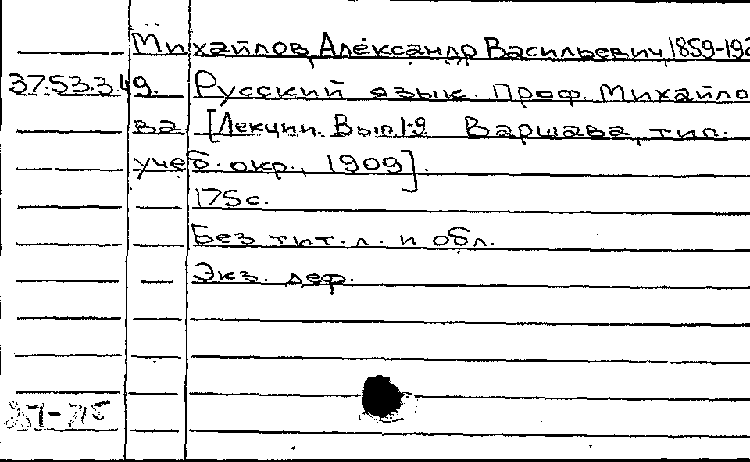 Михайлов, Александр Васильевич, 1859-192
37.53.3.49. Русский язык. Проф. Михайло
ва [Лекции. Вып.1-9 Варшава, тип.
учеб. окр., 1909].
175с.
Без тит. л. и обл.
Экз. деф.